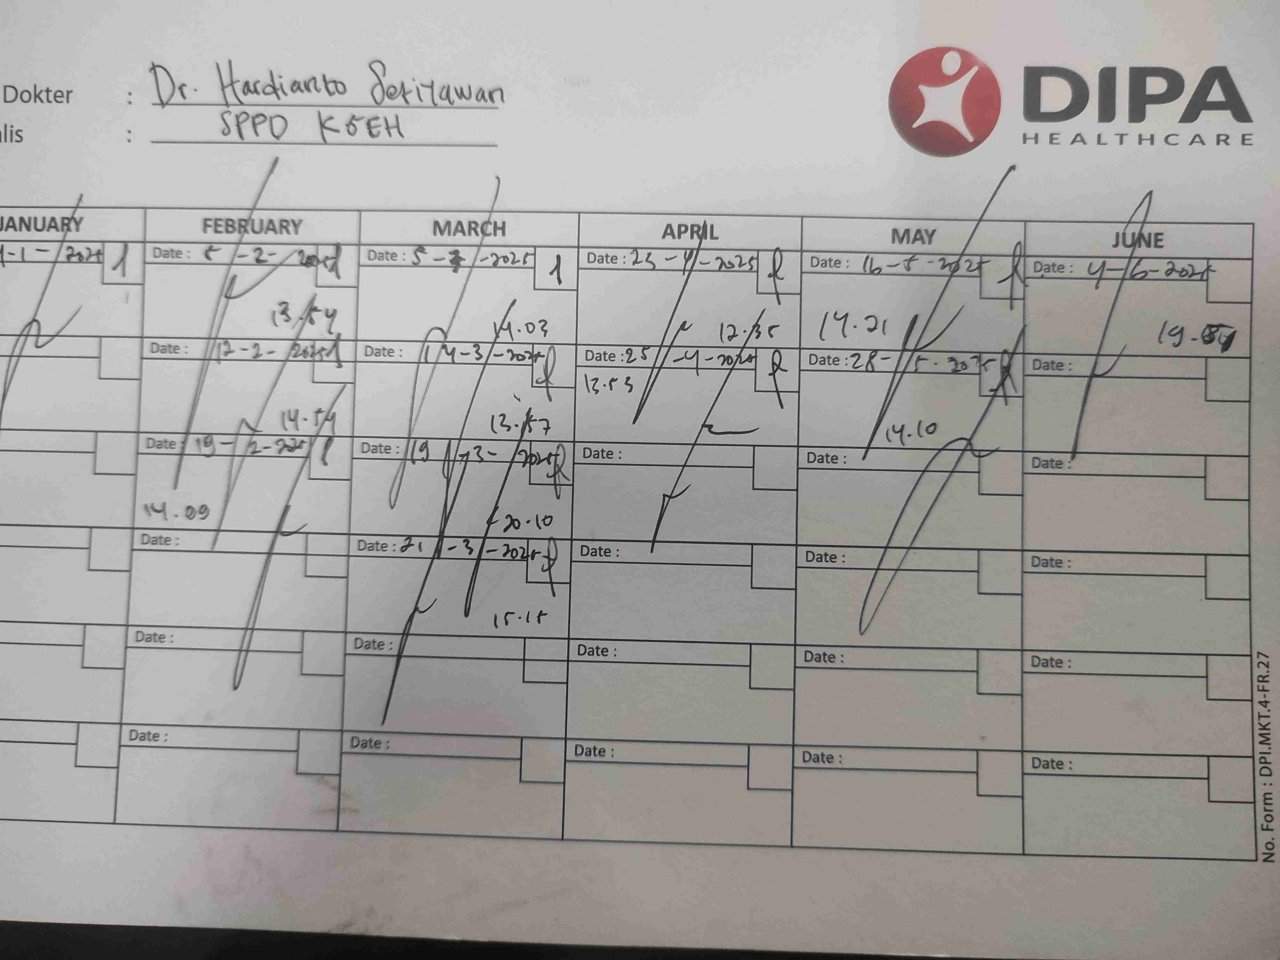 Dokter : Dr. Hardianto Setiyawan
DIPA
HEALTHCARE
lis : SPPD KGEH
JANUARY FEBRUARY MARCH APRIL MAY JUNE
-1-2025 Date: 5-2-2025 Date: 5-3-2025 Date: 23-4-2025 Date: 16-5-2025 Date: 4-6-2025
13.54 14.03 12.35 14.21 19.
Date: 12-2-2025 Date: 14-3-2025 Date: 25-4-2025 Date: 28-5-2025 Date:
14.54 13.57 13.53 14.10
Date: 19-2-2025 Date: 19-3-2025 Date: Date: Date:
14.09 20.10
Date: Date: 21-3-2025 Date: Date: Date:
15.15
Date: Date: Date: Date: Date:
Date: Date: Date: Date: Date:
No. Form : DPI.MKT.4-FR.27